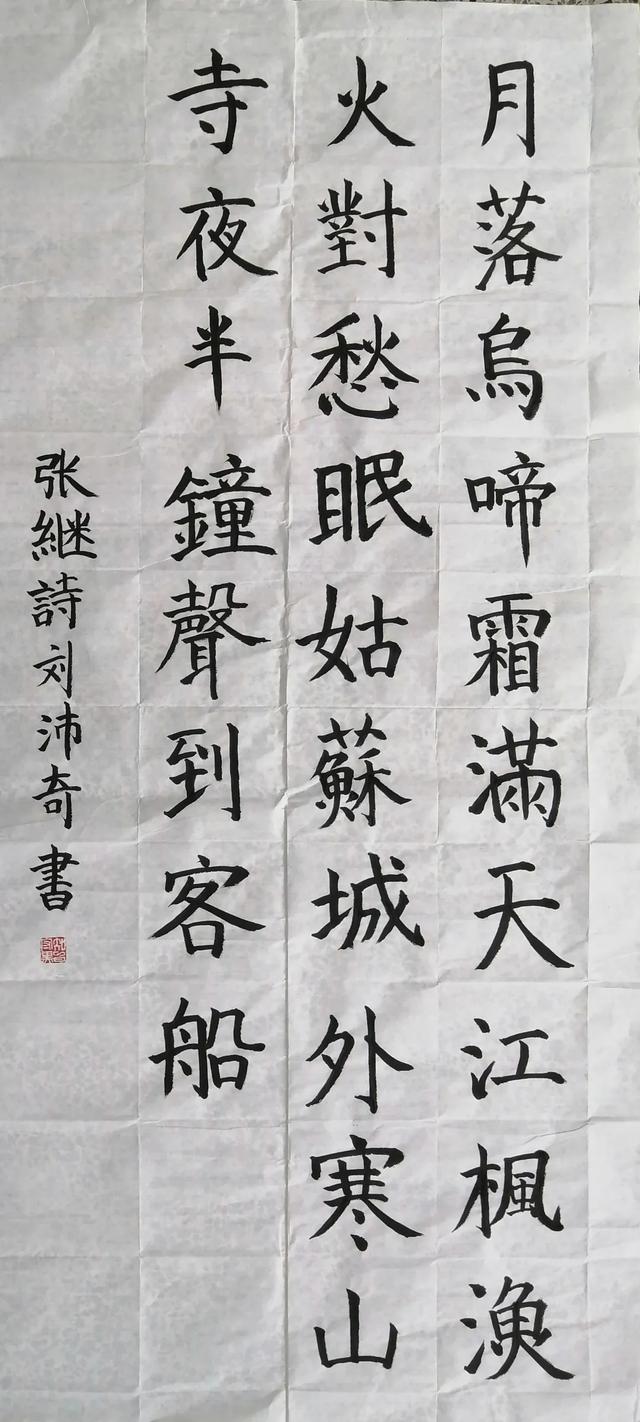 月落烏啼霜滿天江楓漁
火對愁眠姑蘇城外寒山
寺夜半鐘聲到客船
张継詩刘沛奇書